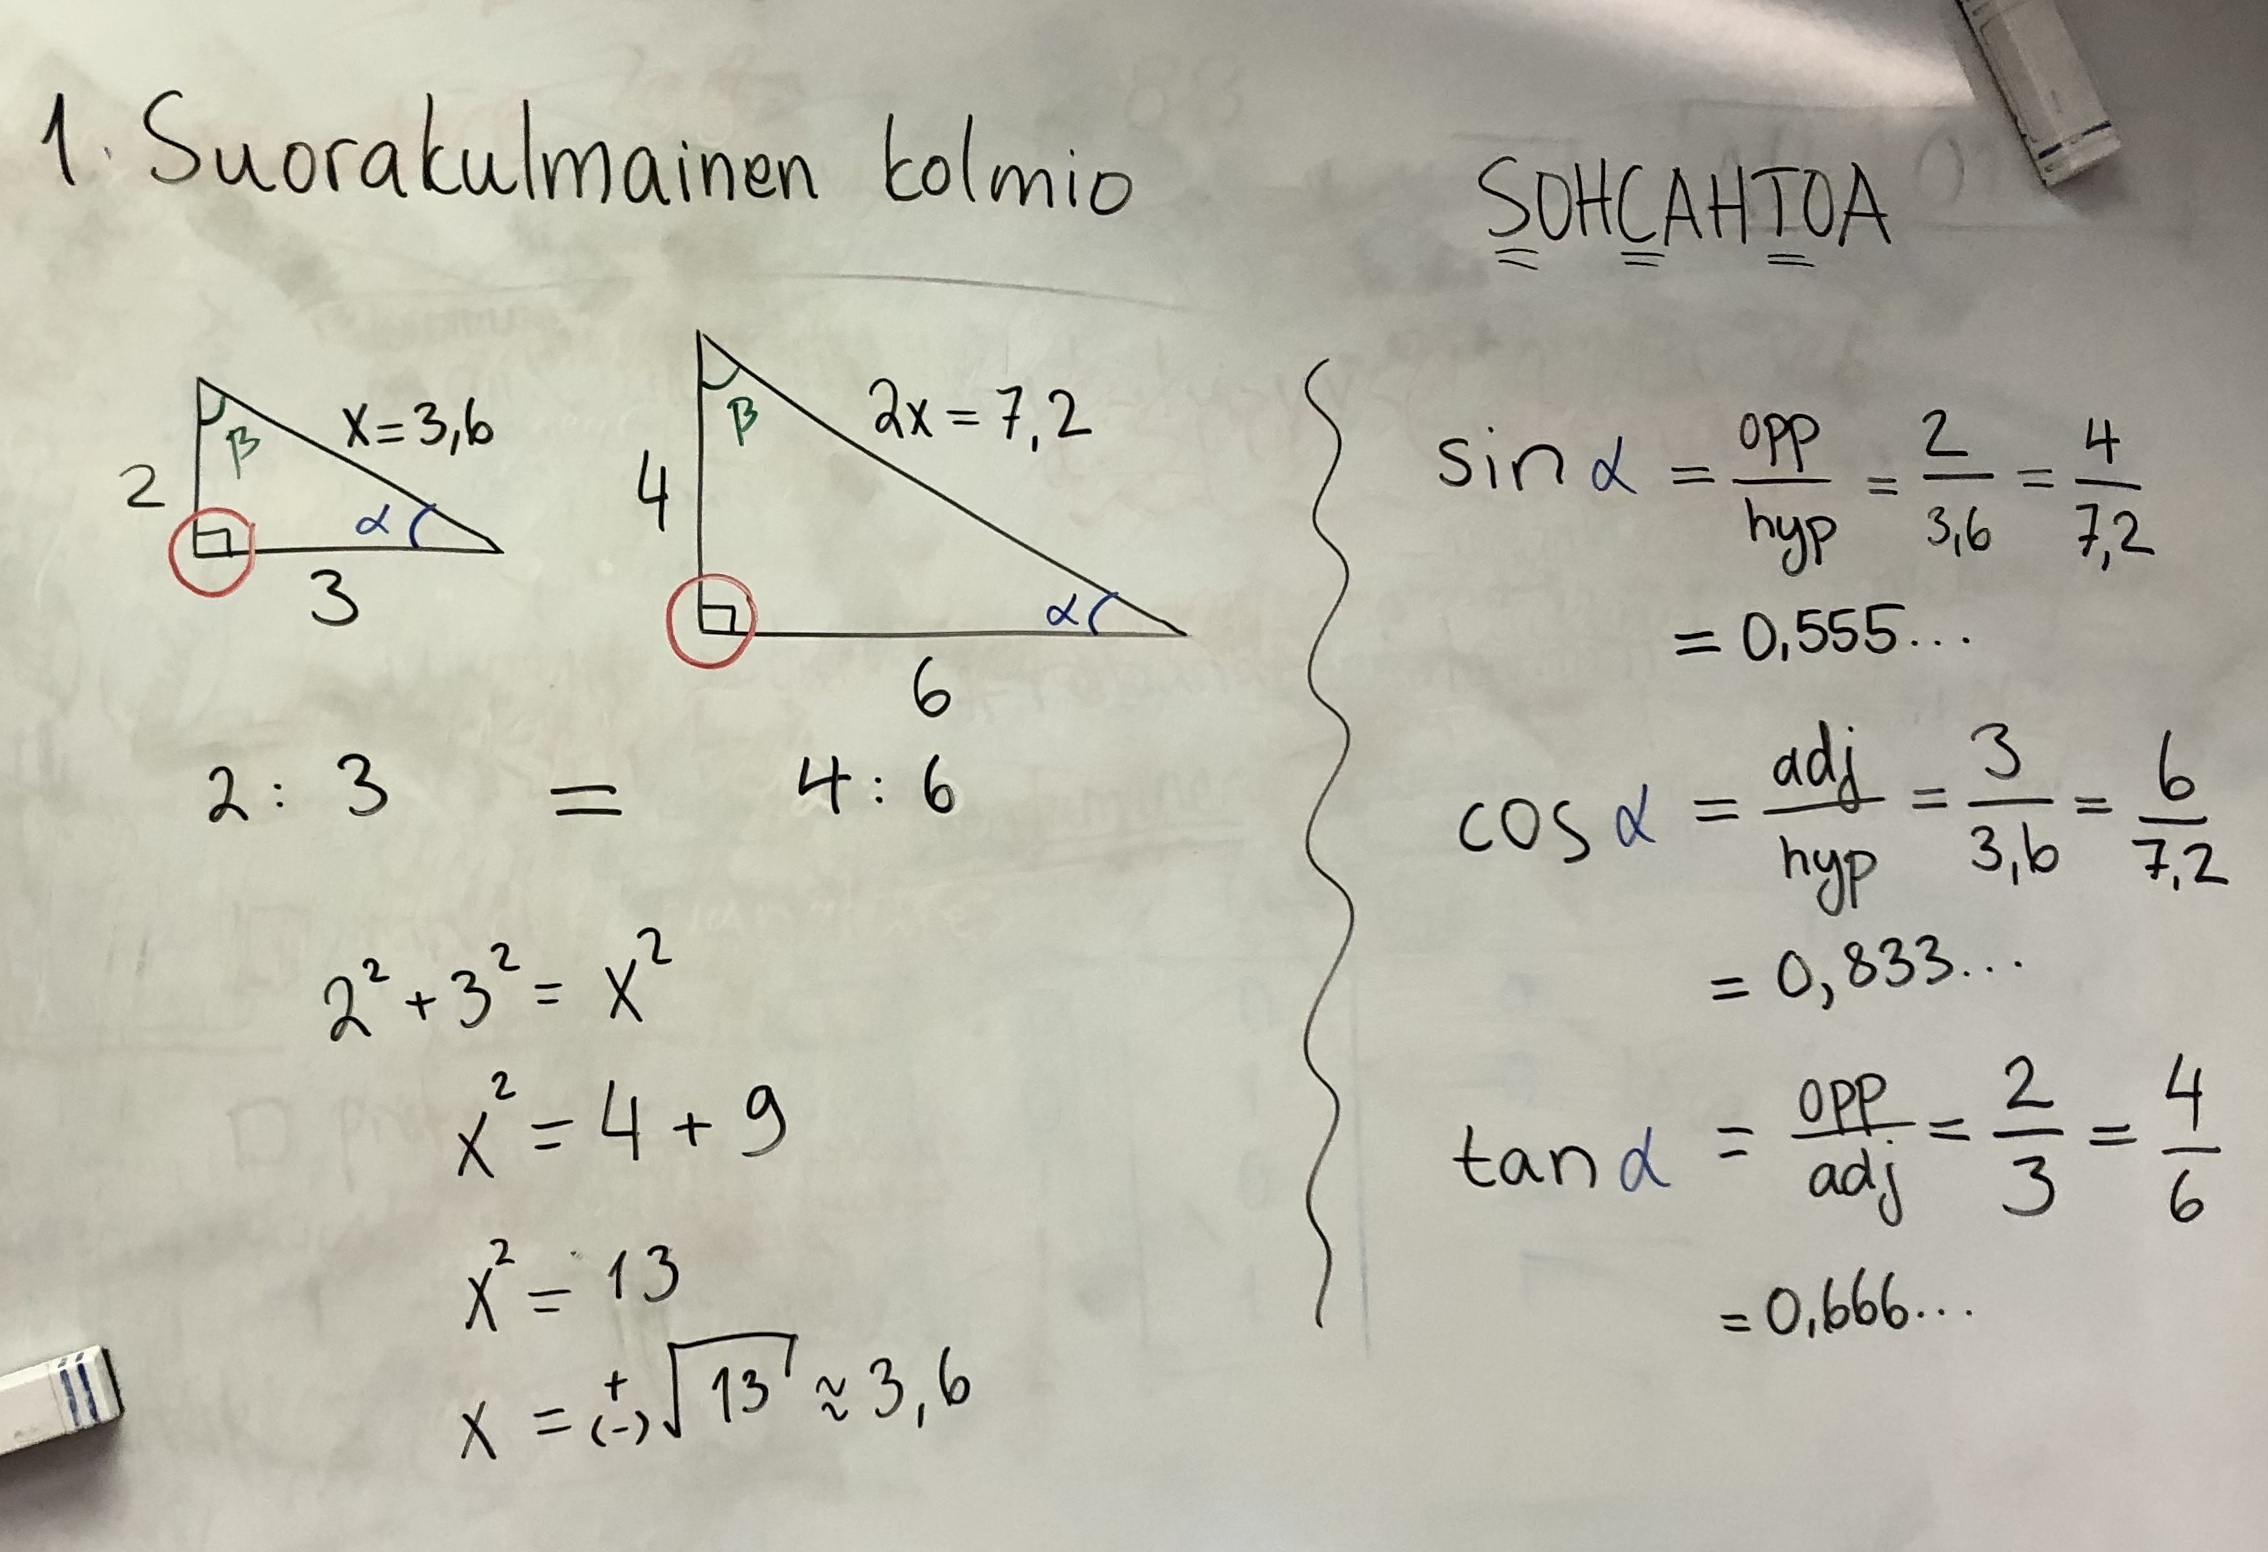 1. Suorakulmainen kolmio
2
β
x=3,6
α
3
4
β
2x = 7,2
α
6
2 : 3 = 4 : 6
2² + 3² = x²
x² = 4 + 9
x² = 13
x = +(-)√13 ≈ 3,6
SOHCAHTOA
sin α = opp/hyp = 2/3,6 = 4/7,2
= 0,555...
cos α = adj/hyp = 3/3,6 = 6/7,2
= 0,833...
tan α = opp/adj = 2/3 = 4/6
= 0,666...